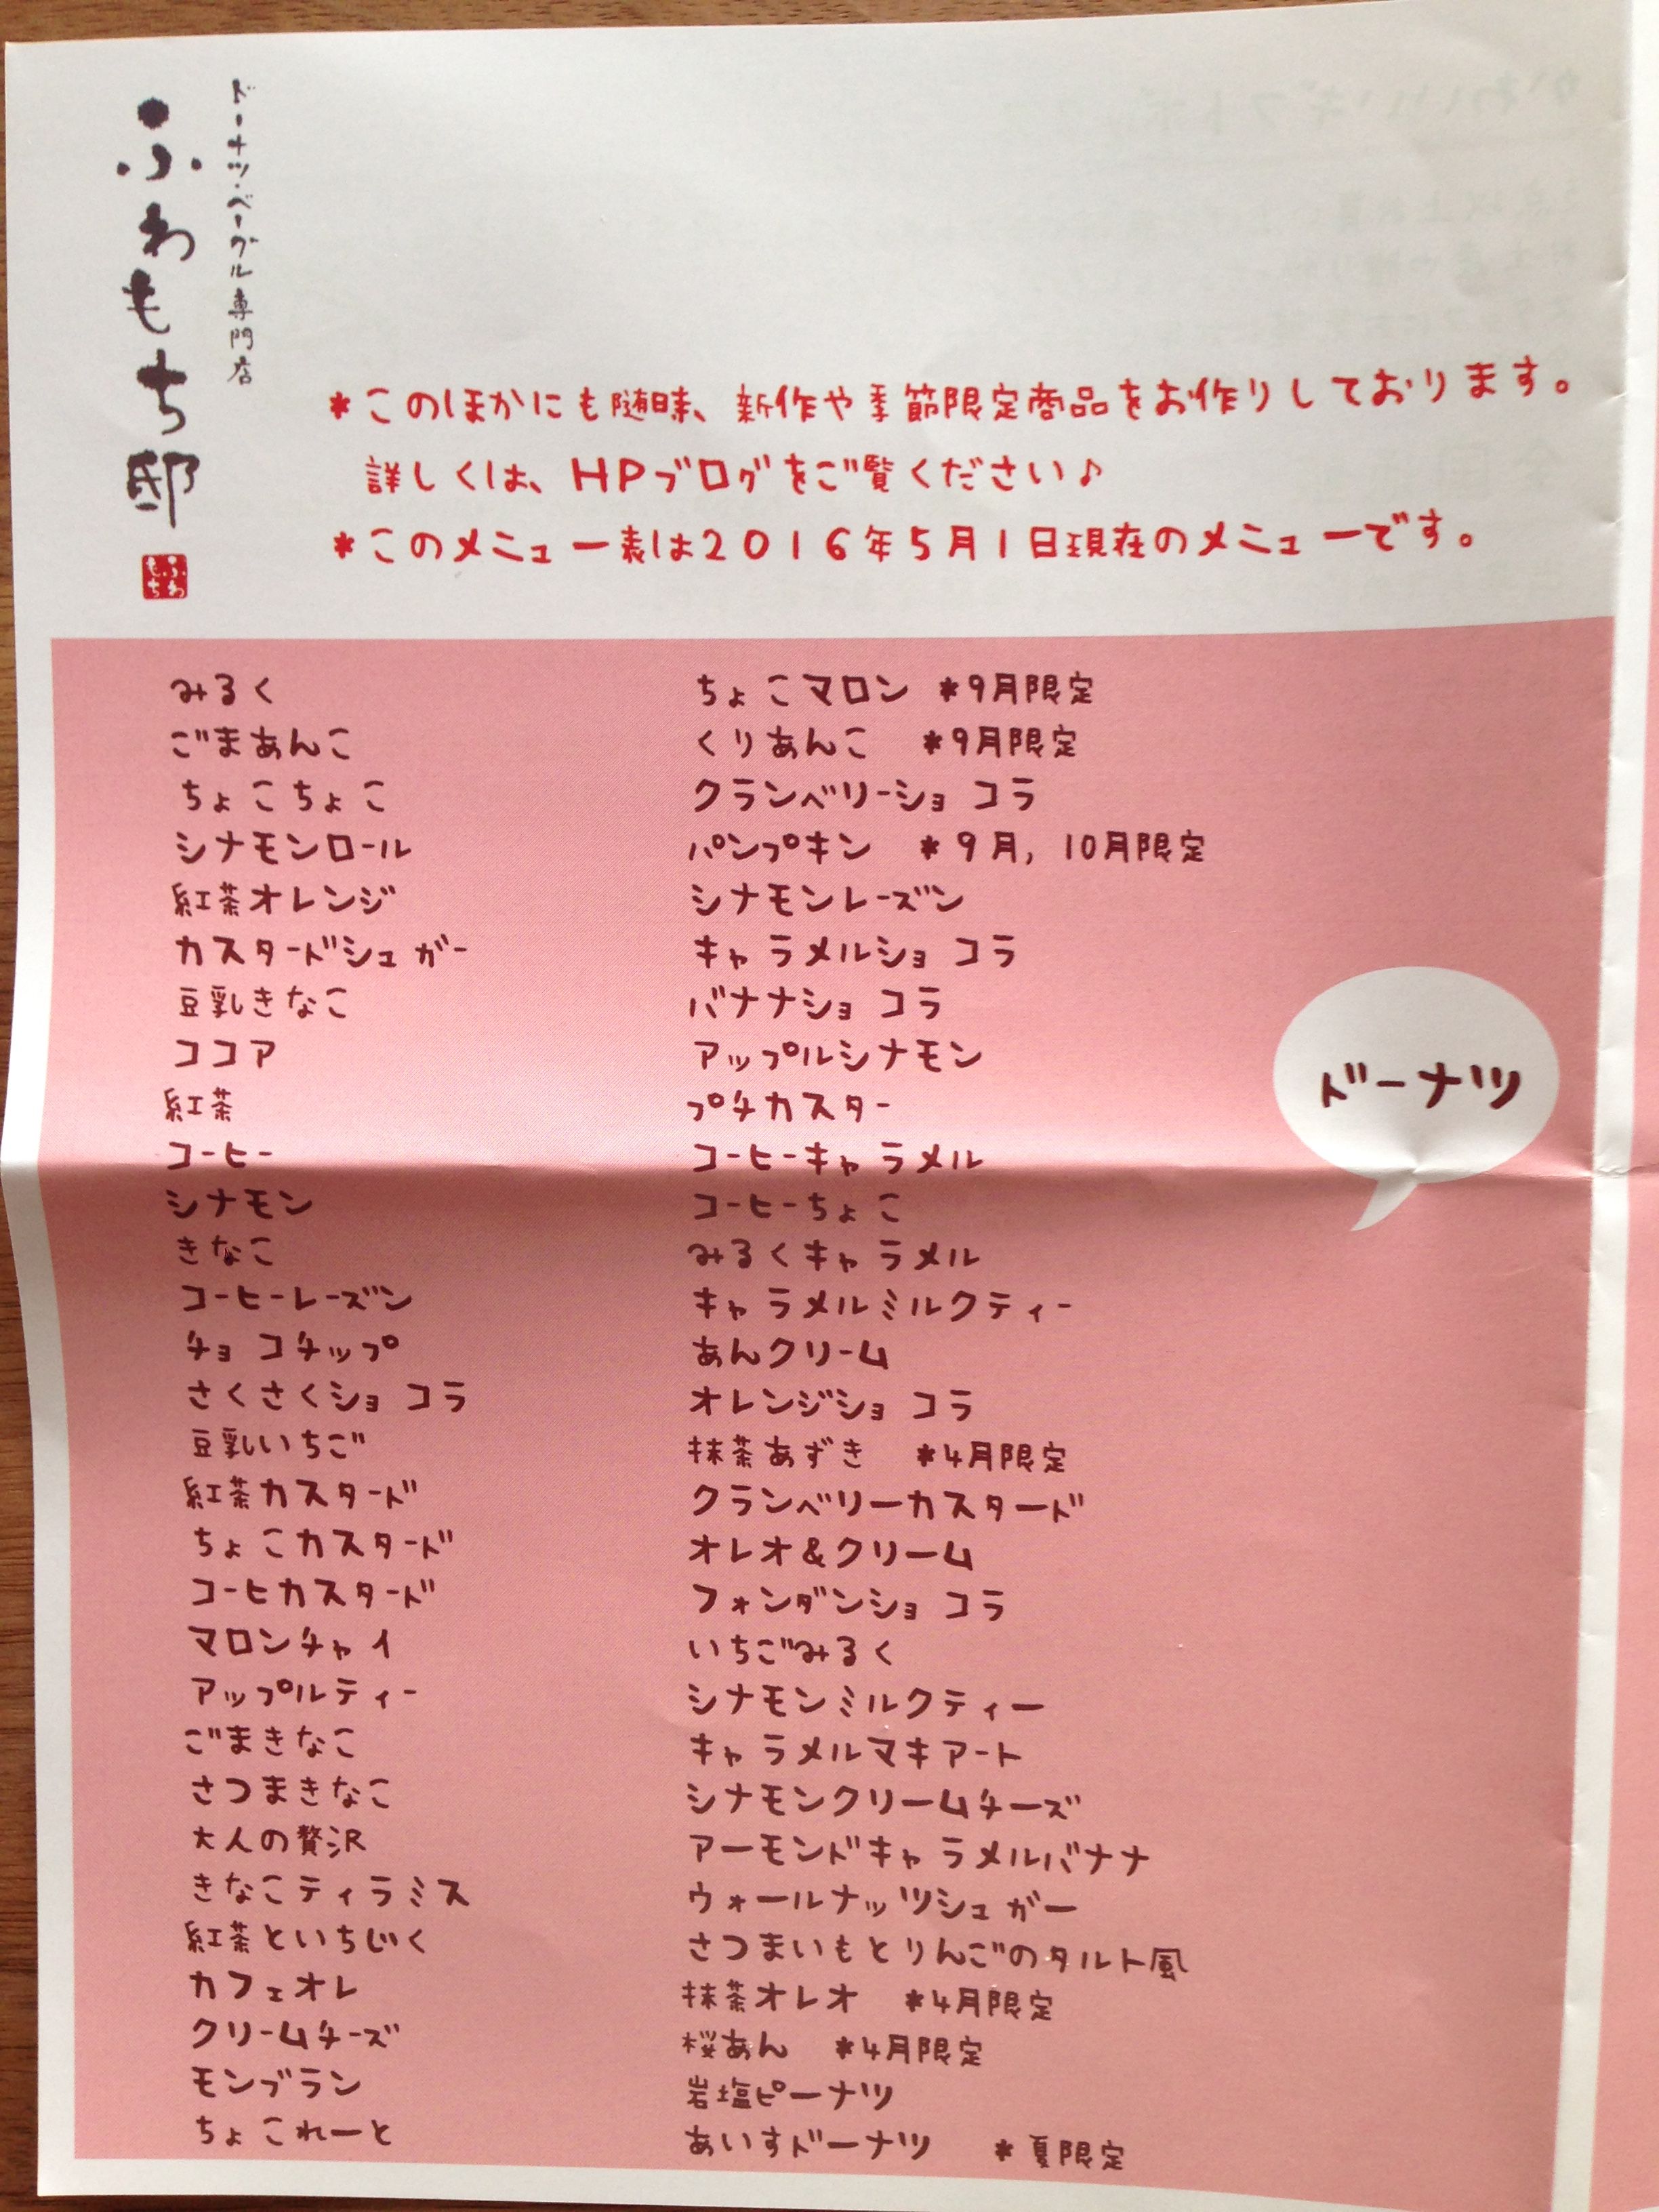 ドーナツ・ベーグル専門店
ふわもち邸
ふわもち
*このほかにも随時、新作や季節限定商品をお作りしております。
詳しくは、HPブログをご覧ください♪
*このメニュー表は2016年5月1日現在のメニューです。
みるく
ごまあんこ
ちょこちょこ
シナモンロール
紅茶オレンジ
カスタードシュガー
豆乳きなこ
ココア
紅茶
コーヒー
シナモン
きなこ
コーヒーレーズン
チョコチップ
さくさくショコラ
豆乳いちご
紅茶カスタード
ちょこカスタード
コーヒカスタード
マロンチャイ
アップルティー
ごまきなこ
さつまきなこ
大人の贅沢
きなこティラミス
紅茶といちじく
カフェオレ
クリームチーズ
モンブラン
ちょこれーと
ちょこマロン *9月限定
くりあんこ *9月限定
クランベリーショコラ
パンプキン *9月,10月限定
シナモンレーズン
キャラメルショコラ
バナナショコラ
アップルシナモン
プチカスター
コーヒーキャラメル
コーヒーちょこ
みるくキャラメル
キャラメルミルクティー
あんクリーム
オレンジショコラ
抹茶あずき *4月限定
クランベリーカスタード
オレオ&クリーム
フォンダンショコラ
いちごみるく
シナモンミルクティー
キャラメルマキアート
シナモンクリームチーズ
アーモンドキャラメルバナナ
ウォールナッツシュガー
さつまいもとりんごのタルト風
抹茶オレオ *4月限定
桜あん *4月限定
岩塩ピーナツ
あいすドーナツ *夏限定
ドーナツ